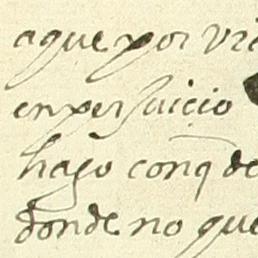 aque por vi
en perJuicio
hago conq de
donde no que